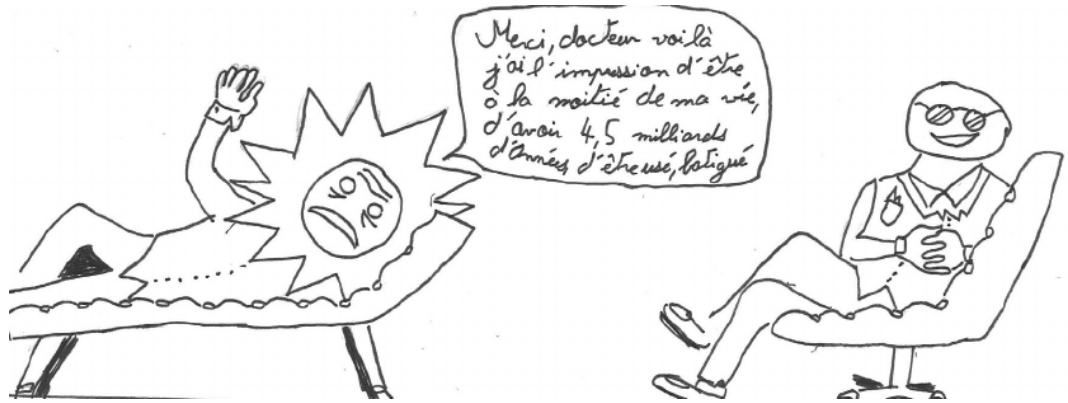 Merci, docteur voilà
j'ai l'impression d'être
à la moitié de ma vie,
d'avoir 4,5 milliards
d'années, d'être usé, fatigué